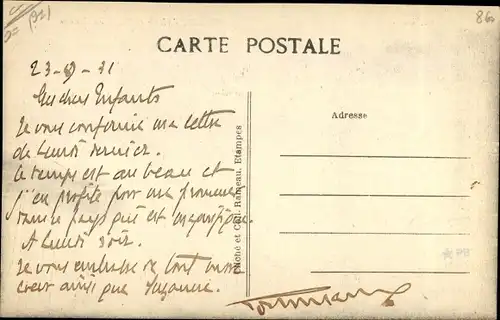 (92)
860
CARTE POSTALE
23-9-31
Mes chers Enfants
Je vous confirme ma lettre
de Lundi dernier.
Le temps est au beau et
j'en profite pour me promener
dans le pays qui est magnifique.
A Lundi soir.
Je vous embrasse de tout mon
cœur ainsi que Suzanne.
Adresse
Cliché et Coll. Rameau. Etampes